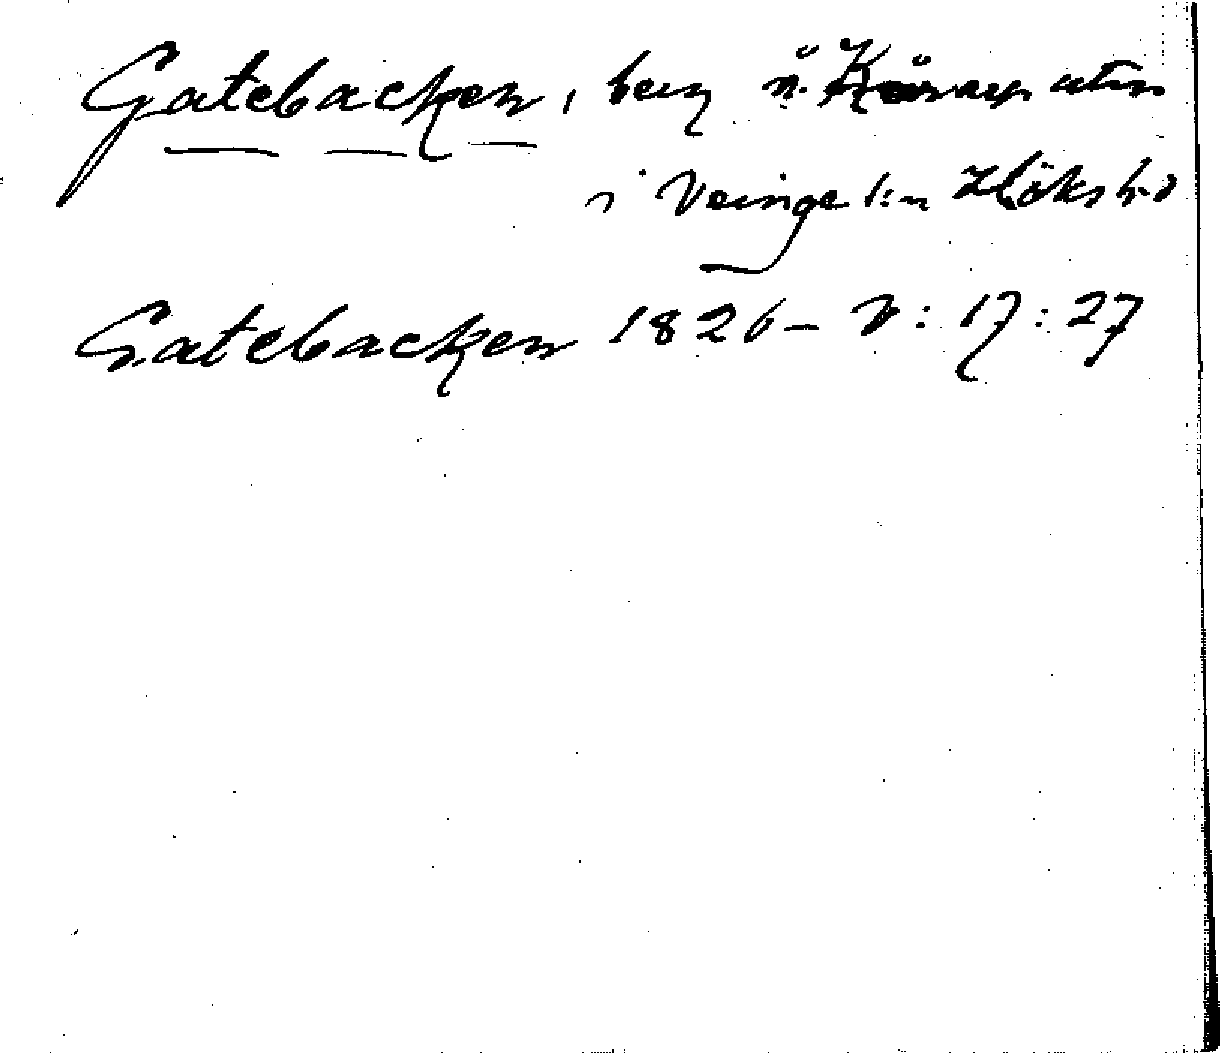 Gatebacken, berg n. Körarp utm
i Veinge s:n Höks h-d
Gatebacken 1826 – V: 17: 27